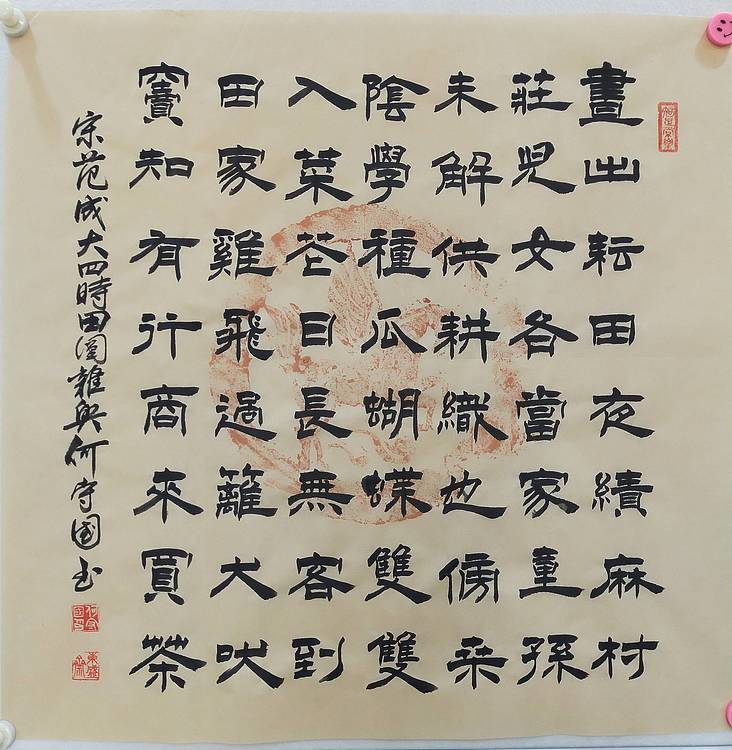 晝出耘田夜績麻村
莊兒女各當家童孫
未解供耕織也傍桑
陰學種瓜蝴蝶雙雙
入菜花日長無客到
田家雞飛過籬犬吠
竇知有行商來買茶
宋范成大四時田園雜興何守國书
何守國印